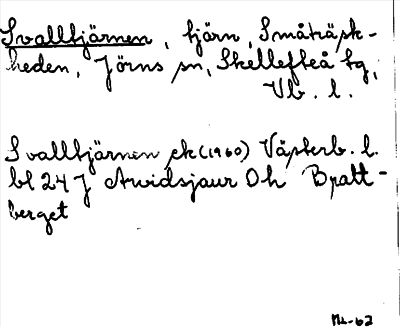 Svalltjärnen, tjärn, Småträsk-
heden, Jörns sn, Skellefteå tg,
Vb. l.
Svalltjärnen ek (1960) Västerb. l.
bl 24 J Arvidsjaur Öh Bratt-
berget